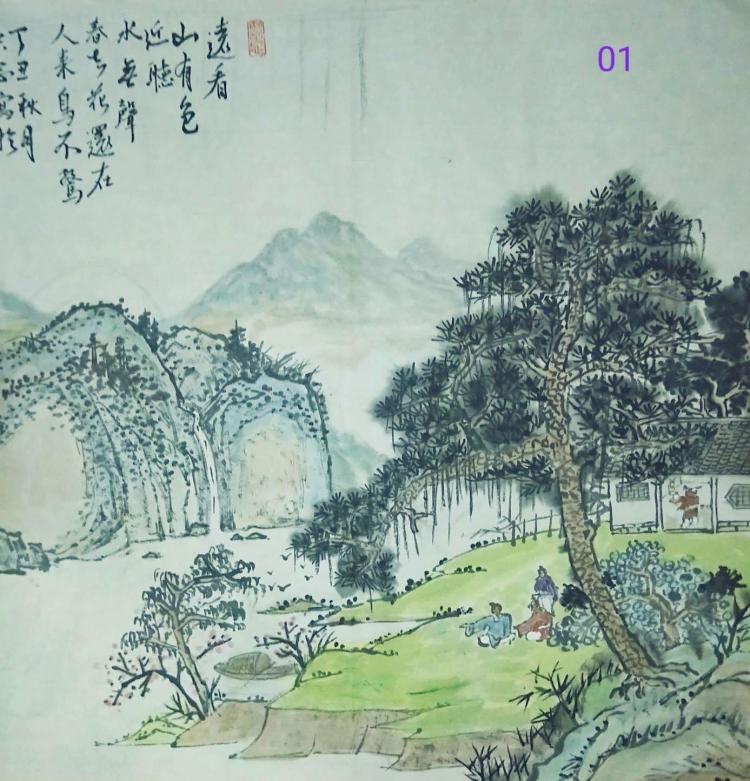 遠看
山有色
近聽
水無聲
春去花還在
人来鳥不驚
丁丑秋月
01